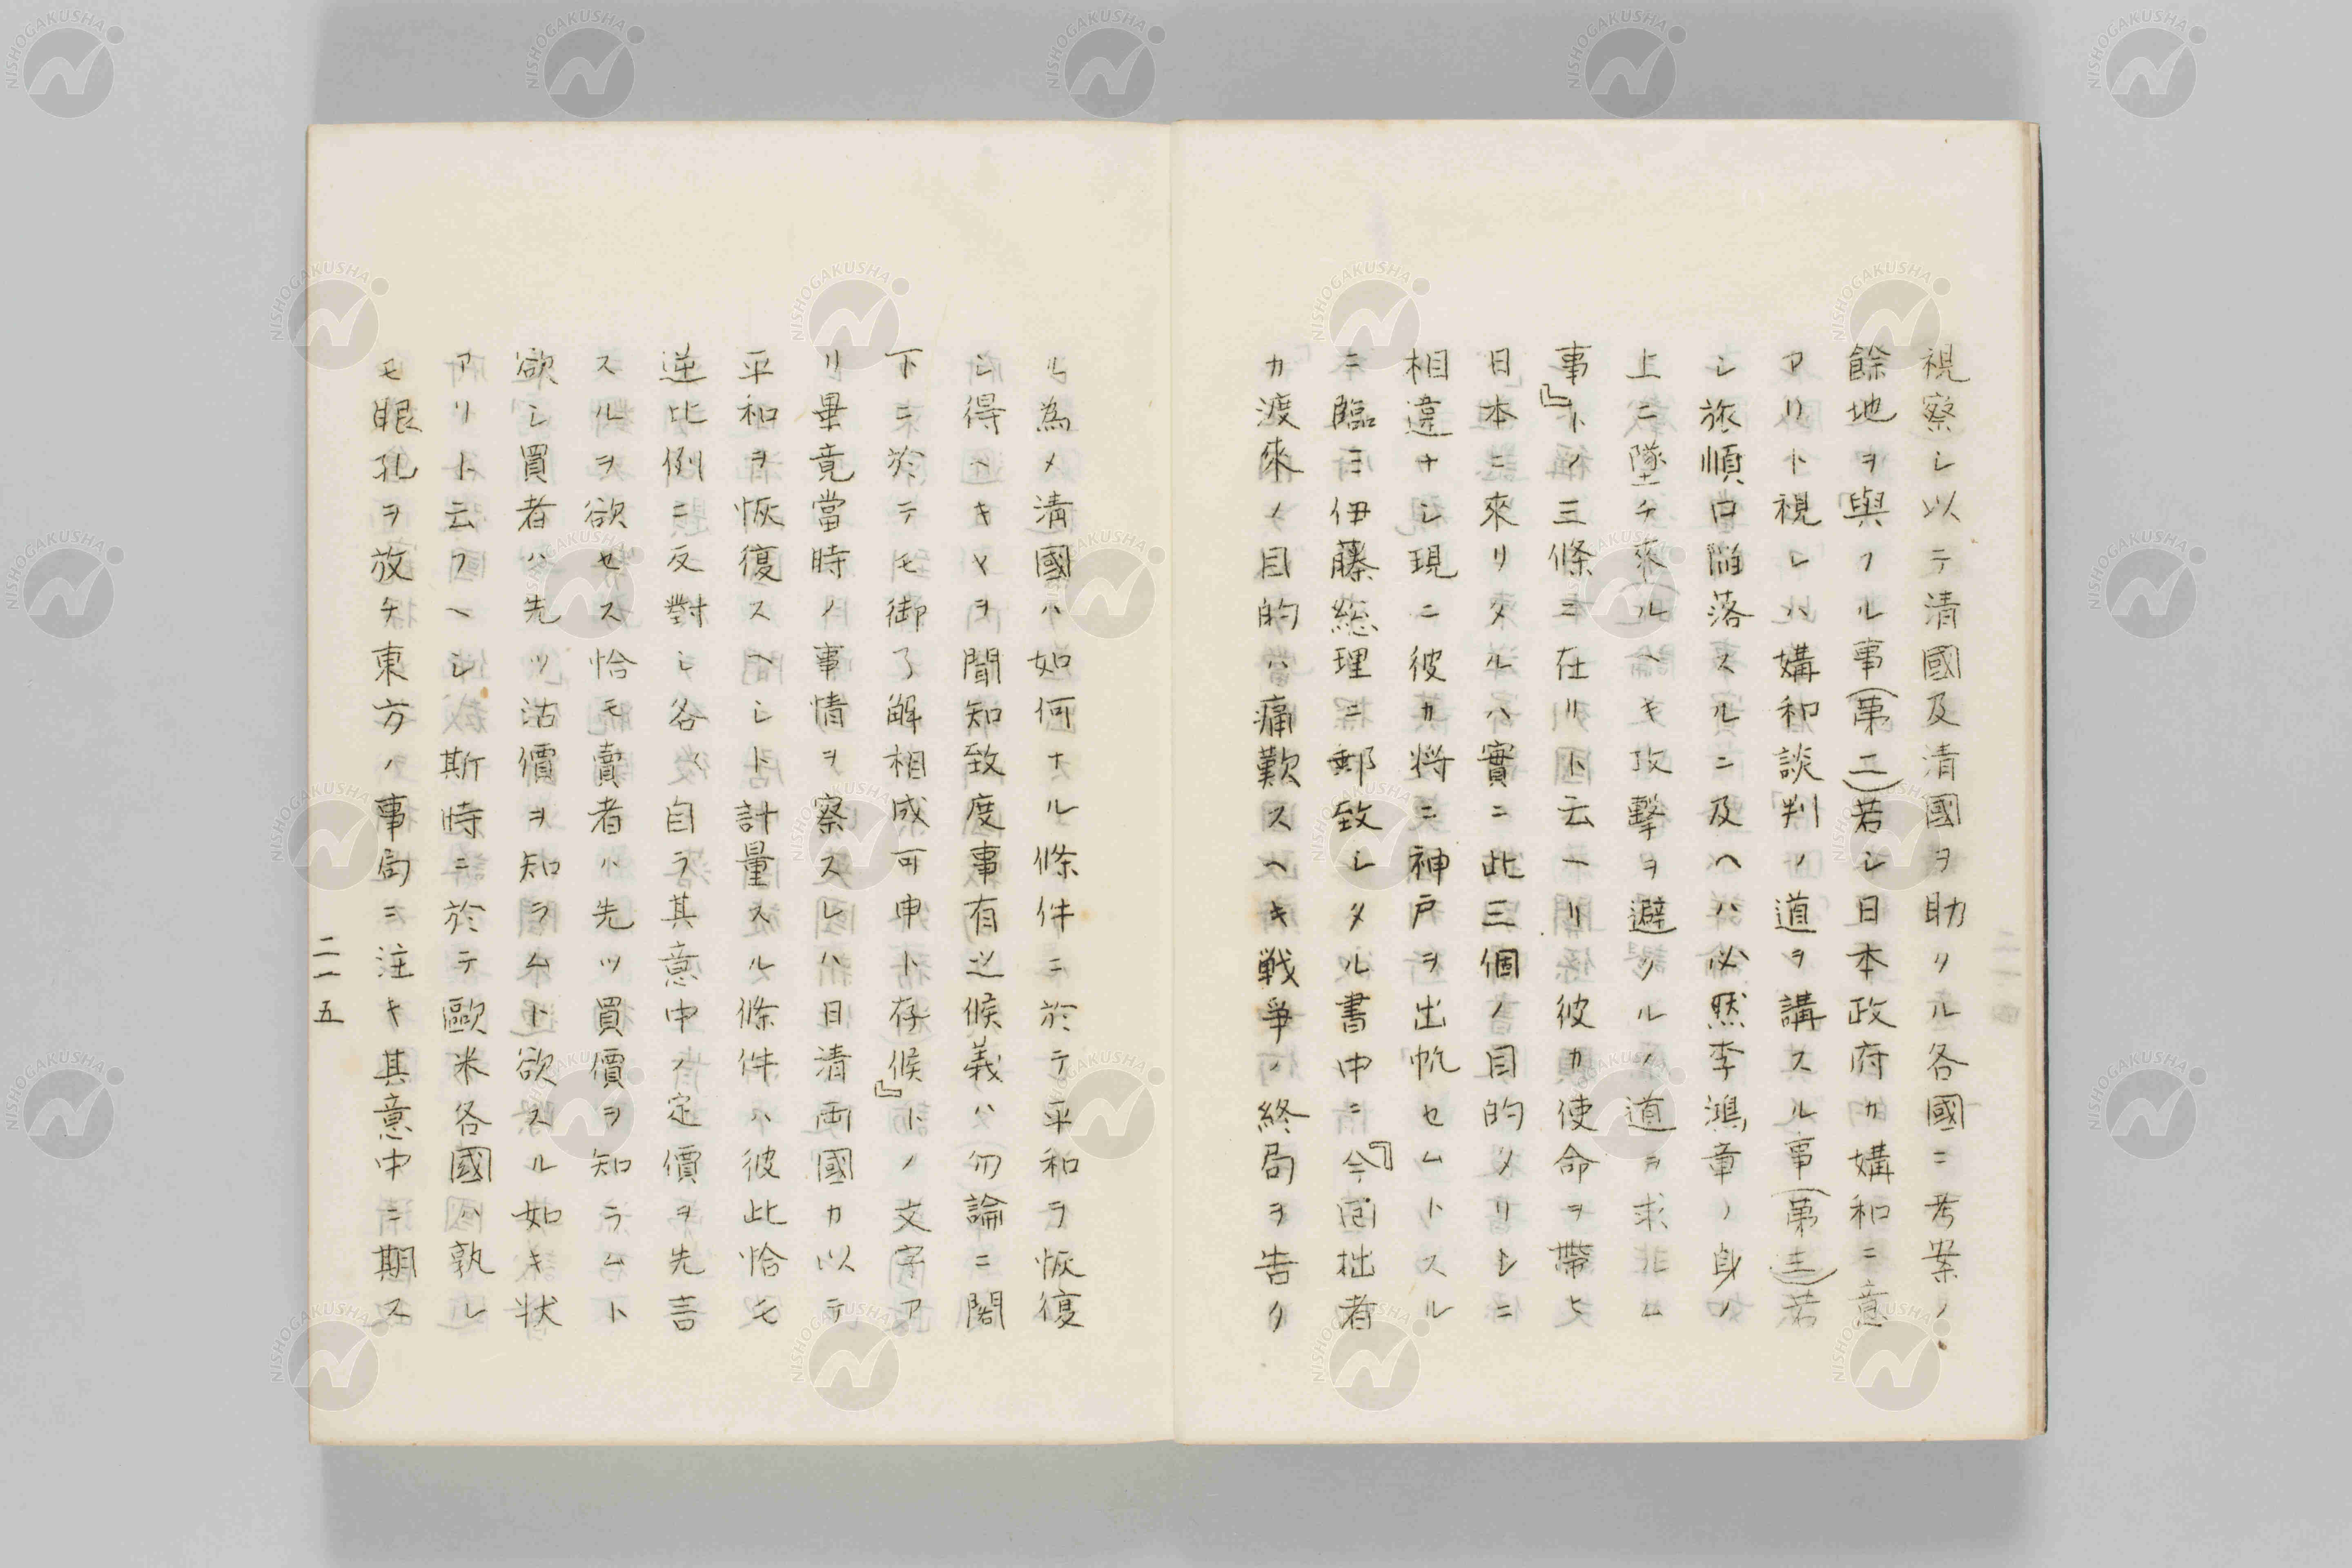 視察シ以テ清國及清國ヲ助クル各國ニ考案ノ
餘地ヲ與フル事(第二)若シ日本政府カ媾和ニ意
アリト視レハ媾和談判ノ道ヲ講スル事(第三)若
シ旅順口陥落スルニ及ヘハ必然李鴻章ノ身ノ
上ニ墜チ來ルヘキ攻擊ヲ避クルノ道ヲ求ムル
事』トノ三條ニ在リト云ヘリ彼カ使命ヲ帶ヒ
日本ニ來リタルハ實ニ此三個ノ目的タリシニ
相違ナシ現ニ彼カ将ニ神戸ヲ出帆セムトスル
ニ臨ミ伊藤総理ニ郵致シタル書中ニ『今囘拙者
カ渡來ノ目的ハ痛歎スヘキ戦爭ノ終局ヲ告ク
ル為メ清國ハ如何ナル條件ニ於テ平和ヲ恢復
シ得ヘキヤヲ聞知致度事有之候義ハ勿論ニ閣
下ニ於テモ御了解相成可申ト存候』トノ文字ア
リ畢竟當時ノ事情ヲ察スレハ日清両國カ以テ
平和ヲ恢復スヘシト計量スル條件ハ彼此恰モ
逆比例ニ反對シ各〻自ラ其意中ノ定價ヲ先言
スルヲ欲セス恰モ賣者ハ先ツ買價ヲ知ラムト
欲シ買者ハ先ツ沽價ヲ知ラムト欲スル如キ状
アリト云フヘシ斯時ニ於テ歐米各國ハ孰レ
モ眼孔ヲ放チ東方ノ事局ニ注キ其意中ニ期ス
二一五
NISHOGAKUSHA